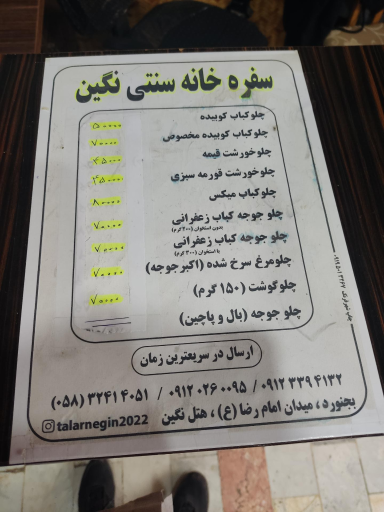 سفره خانه سنتی نگین
چلوکباب کوبیده ۵۰۰۰۰
چلوکباب کوبیده مخصوص ۷۰۰۰۰
چلوخورشت قیمه ۴۵۰۰۰
چلوخورشت قورمه سبزی ۴۵۰۰۰
چلوکباب میکس ۸۰۰۰۰
چلو جوجه کباب زعفرانی ۷۰۰۰۰
بدون استخوان (۳۰۰ گرم)
چلو جوجه کباب زعفرانی ۷۰۰۰۰
با استخوان (۳۰۰ گرم)
چلومرغ سرخ شده (اکبرجوجه) ۷۰۰۰۰
چلوگوشت (۱۵۰ گرم) ۷۰۰۰۰
چلو جوجه (بال و پاچین)
ارسال در سریعترین زمان
۰۹۱۲ ۳۳۹ ۴۱۳۲ / ۰۹۱۲ ۰۲۶ ۰۰۹۵ / (۰۵۸) ۳۲۴۱ ۴۰۵۱
بجنورد ، میدان امام رضا (ع) ، هتل نگین
talarnegin2022